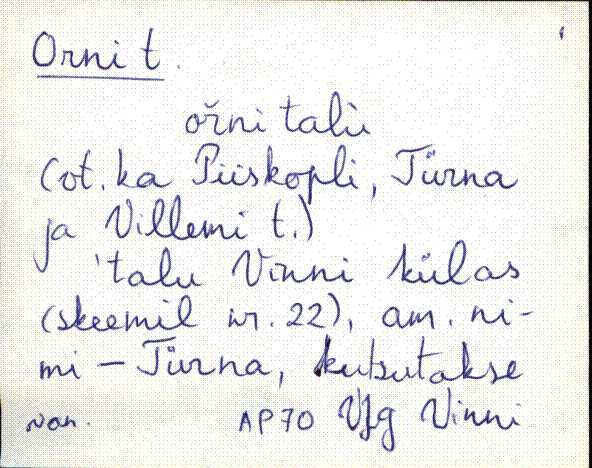 Orni t.
ořni talù
(ot. ka Piiskopli, Türna
ja Villemi t.)
'talu Vinni külas
(skeemil nr. 22), am. ni-
mi – Türna, kutsutakse
van. AP70 VJg Vinni